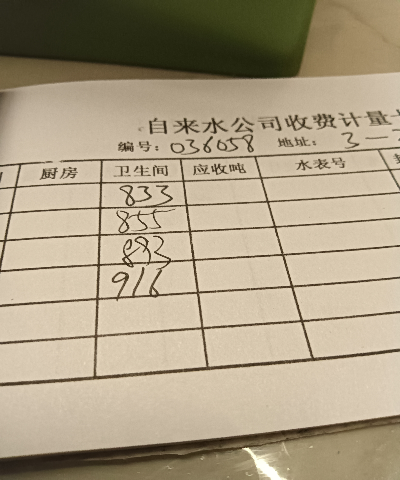 自来水公司收费计量
编号：036058 地址：3一
厨房 卫生间 应收吨 水表号
833
855
893
916